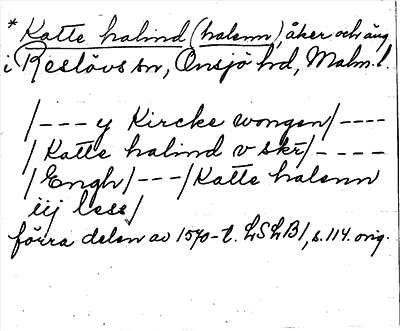 * Katte halind (halsnn), åker och äng
i Reslövs sn, Onsjö hd, Malm. l.
/--- y Kircke wongen/----
/Katte halind v skr/----
/Engh/---/Katte halsnn
iij less/
förra delen av 1570-t. LSLB1, s. 114. orig.